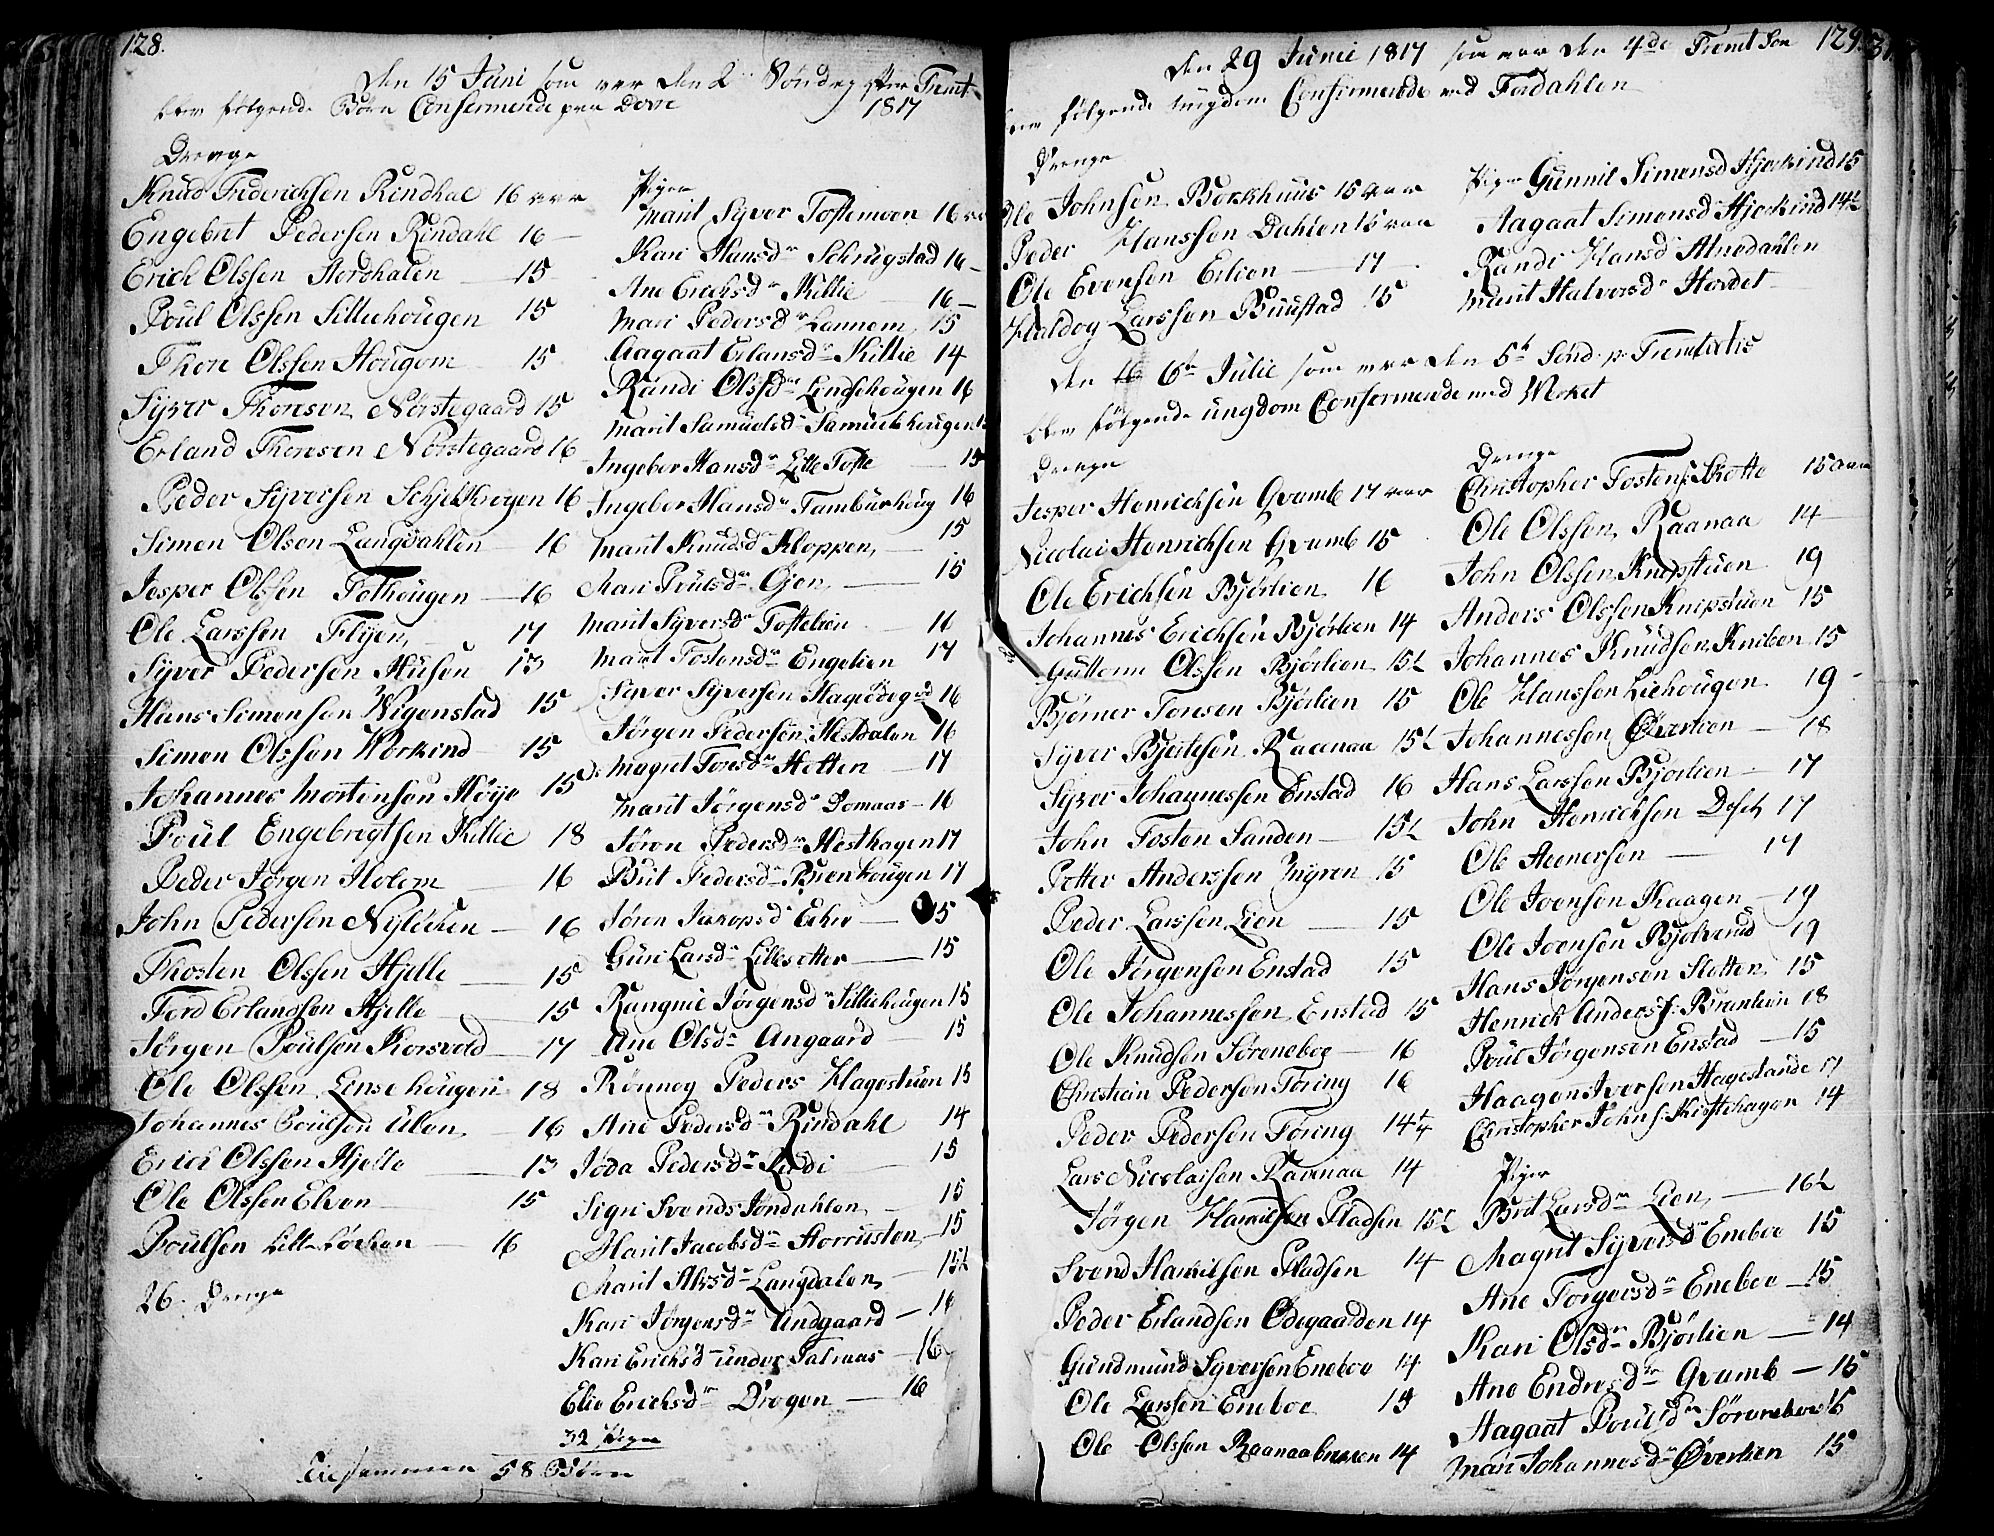 128.
Den 15 Juni som var den 2 Søndag efter Tremt.
blev følgende Børn Confermerede paa Dovre 1817
Drenge
Knud Friderichsen Rindhal 16 aar
Engebret Pedersen Rindahl 16 —
Erich Olssen — 15
Poul Olssen Silliehougen 15
Thore Olssen Hougom 15
Syver Thoresen Nørstegaard 15
Erland Thoresen Nørstegaard 16
Peder Syversen 16
Simen Olsen Langdahlen — 16
Jesper Olssen — 16
Ole Larssen Flyen — 17
Syver Pedersen Husen 13
Hans Simensen Wigenstad 15
Simen Olssen Workind 15
Johannes Mortensen Høye 15
Poul Engebrigtsen Killie 18
Peder Jørgen Holem — 16
John Pedersen Nyløcken — 16
Thosten Olssen Hjelle — 15
Tord Erlandssen Hjelle — 15
Jørgen Poulsen Korsvold — 17
Ole Olssen Linsehougen 18
Johannes Poulsen Ulen 16
Erich Olssen Hjelle — 13
Ole Olssen Elven — 15
Poulsen Lille Løcken — 16
26 Drenge
Piger
Marit Syver Toftemoen 16 aar
Kari Hansdr Schrugstad 16 —
Ane Erichsdr Killie — 16 —
Mari Pedersdr Lannem 15
Aagaat Erlansdr Killie 14
Randi Olssdr Lindsehougen 16
Marit Samuelsdr Samuelshougen
Ingebor Hansdr Lille Tofte — 15
Ingebor Hansdr Tamburhoug 16
Marit Knudsdr Kloppen — 15
Mari Poulsdr Gjen — 15
Marit Syversdr Toftelien 16
Marit Tostensdr Engelien 17
Syver Syversen 16
Jørgen Pedersen Hestdalen 16
Magnet Toresdr Hetten — 17
Marit Jørgensdr Domaas — 16
Jøron Pedersdr Hesthagen 17
Brit Pedersdr Brenhougen 17
Jøren Jacopsd — 15
Guri Larsdr Lillesetter — 15
Rangnie Jørgensdr Silliehougen 15
Ane Olsdr Angaard — 15
Rønnog Peders Hagestuen 15
Ane Pedersdr Rindahl 14
Joda Pedersdr — 15
Sigri Svends Jøndahlen — 15
Marit Jacobsdr — 15
Marit Langdalen — 15½
Kari Jørgensdr Undgaard — 16
Kari Erichsdr under Talmaas — 16
Elie Erichsdr — 16
32 Piger
Tilsammen 58 Børn
129.
Den 29 Junie 1817 som var den 4de Tremt Søn
blev følgende ungdom Confirmerede ved Fordahlen
Drenge
Ole Johnsen Borkhuus 15 aar
Peder Hanssen Dahlen 15 aar
Ole Evensen Erlien — 17
Haldog Larssen Buustad 15
Piger Gunnil Simensd Hjerkind 15
Aagaat Simensd Hjerkind 14½
Randi Hansd
Marit Halvorsdr
Den 6te Julie som var den 5te Sønd. p. Tremitatis
blev følgende ungdom Confermerede ved Verket
Drenge
Jesper Henrichsen Qvamb 17 aar
Nicolai Henrichsen Qvamb 15
Ole Erichsen Bjørlien 16
Johannes Erichsen Bjørlien 14
Guttorm Olssen Bjørlien 15½
Bjørner Toresen Bjørlien 15
Syver Raanaa 15½
Syver Johannessen Enstad 16
John Tosten Sanden — 15½
Petter Anderssen Myren 15
Peder Larssen Lien — 15
Ole Jørgensen Enstad 15
Ole Johannessen Enstad 15
Ole Knudsen Søreneboe — 16
Christian Pedersen Toring 16
Peder Pedersen Toring 14¼
Lars Nicolaisen Raanaa 14
Jørgen Pladsen 15½
Svend Pladsen 14
Peder Erlandsen Ødegaarden 14
Gundmund Syversen Eneboe 14
Ole Larssen Eneboe 15
Ole Olssen 14
Drenge
Christopher Tostens: Skotte 15 aar
Ole Olssen Raanaa 14 —
John Olssen Knipstuen 19
Anders Olssen Knipstuen 15
Johannes Knudsen Kniben 15
Ole Hanssen Liehougen 19
Johannessen Øverlien — 18
Hans Larssen Bjorlien 17
John Henrichsen 17
Ole — 17
Ole Joensen Kaagen 19
Ole Joensen Bjolverud 19
Hans Jørgensen Sletten 15
Henrick Anders: Brantlien 18
Poul Jørgensen Enstad — 15
Haagen Iversen Hagestande 17
Christopher Johns: 14
Piger
Brit Larsdr Lien — 16½
Magnit Syversdr Eneboe 15
Ane Torgersdr Eneboe — 15
Kari Olsdr Bjørlien — 14
Ane Endresdr Qvamb — 15
Aagaat Poulsdr Søreneboe 15
Mari Johannesdr Øverlien 15